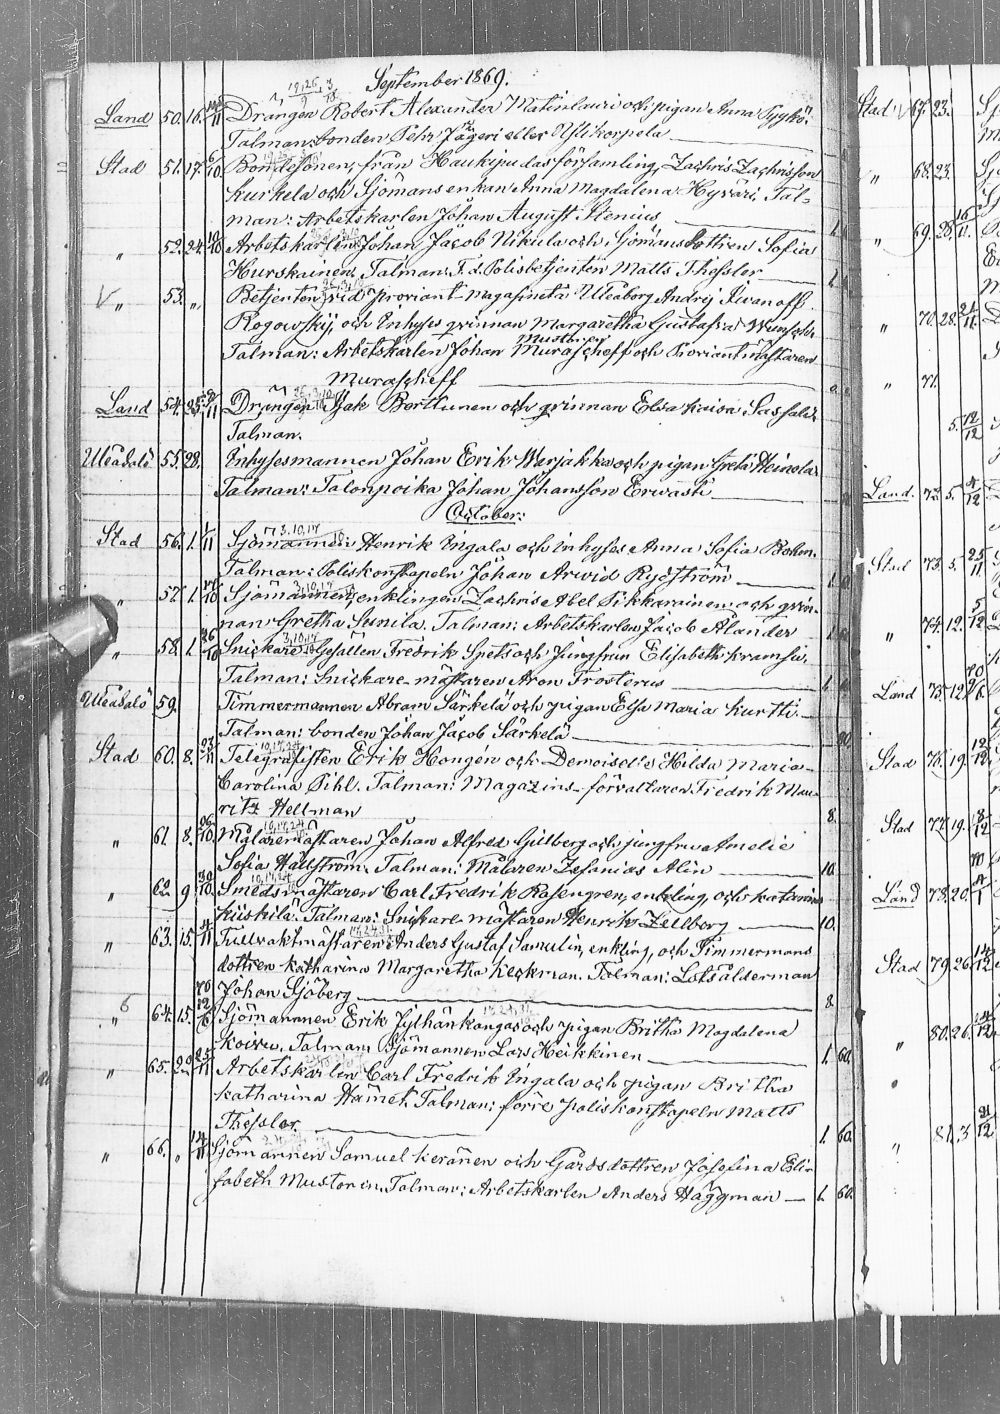 September 1869.
19, 26, 3
Land 50. 16. Drängen Robert Alexander Matinlauri och pigan Anna Pyykö.
Talman: bonden Pehr Jägeri eller Ylikorpela
Stad 51. 17. Bondesonen, från Haukipudas församling, Zachris Zachrisson
Kurkela och Sjömansenkan Anna Magdalena Hyväri. Tal-
man: Arbetskarlen Johan August Stenius
" 52. 24. Arbetskarlen Johan Jacob Nikula och Sjömansdottren Sofia
Hurskainen, Talman: F. d. Polisbetjenten Matts Thessler
V " 53. " Betjenten vid Proviant-magasinet i Uleåborg Andrej Iwanoff
Rogowskij och Inhyses qvinnan Margaretha Gustafva
Talman: Arbetskarlen Johan Murascheff och Proviantmästaren
Murascheff
Land 54. 25. Drängen Isak Berttunen och qvinnan Elsa Kaisa Sassali.
Talman.
Uleåsalo 55. 28. Inhysesmannen Johan Erik Warjakka och pigan Greta Heinola
Talman: Talonpoika Johan Johansson Erwasti
October:
3, 10, 17
Stad 56. 1. 1/11 Sjömannen Henrik Ingala och Inhyses Anna Sofia
Talman: Poliskonstapeln Johan Arvid Rydström
3, 10, 17
" 57. 1. Sjömannen, enklingen Zachris Abel Pikkarainen och qvin-
nan Gretha Sunila. Talman: Arbetskarlen Jacob Ålander
3, 10, 17
" 58. 1. 26/10 Snickare Gesällen Fredrik Spets och Jungfrun Elisabeth Kramsu.
Talman: Snickare-mästaren Aron Frosterus
Uleåsalo 59. Timmermannen Abram Särkelä och pigan Elsa Maria Kurtti.
Talman: bonden Johan Jacob Särkelä
10, 17, 24
Stad 60. 8. Telegrafisten Erik Hongén och Demoiselle Hilda Maria
Carolina Pihl. Talman: Magazins-förvaltaren Fredrik Mau-
ritz Hellman 8.
10, 17, 24
" 61. 8. Målaremästaren Johan Alfred Gillberg och jungfru Amelie
Sofia Hällström. Talman: Målaren Zefanias Alin 10.
10, 17, 24
" 62. 9 30/10 Smedsmästaren Carl Fredrik Rosengren, enkling, och Katarina
Kiiskilä. Talman: Snickare-mästaren Henrik Zellberg 10.
17, 24, 31
" 63. 15. Tullvaktmästaren Anders Gustaf Samulin, enkling, och Timmermans
dottren Katharina Margaretha Keckman. Talman: Lotsålderman
Johan Sjöberg 8.
" 64. 15. Sjömannen Erik Jylhänkangas och pigan Britha Magdalena
Koivu. Talman: Sjömannen Lars Heikkinen 1. 60.
" 65. 22 Arbetskarlen Carl Fredrik Ingala och pigan Britha
Katharina Hamet. Talman: förre poliskonstapeln Matts
Thessler. 1. 60.
" 66. " 14/11 Sjömannen Samuel Keränen och Gårdsdottren Josefina Elis
sabeth Mustonen. Talman: Arbetskarlen Anders Häggman 1. 60.
Stad 67. 23.
" 68. 23.
" 69. 28. 16/11.
" 70. 28. 21/11.
" 71.
5. 12/12
Land. 72. 5. 4/12
Stad 73. 5. 25/11
" 74. 12. 5/12
Land 75. 12.
Stad 76. 19. 12/12
Stad 77. 19.
Land 78. 20.
Stad 79. 26. 14/12
" 80. 26. 14/12
" 81. 3 21/12